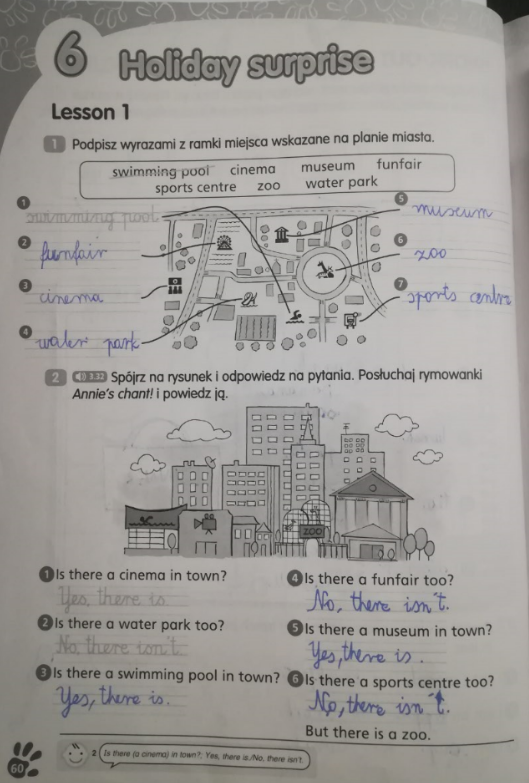 6 Holiday surprise
Lesson 1
1 Podpisz wyrazami z ramki miejsca wskazane na planie miasta.
swimming pool cinema museum funfair
sports centre zoo water park
1 swimming pool
2 funfair
3 cinema
4 water park
5 museum
6 zoo
7 sports centre
2 2.32 Spójrz na rysunek i odpowiedz na pytania. Posłuchaj rymowanki
Annie's chant! i powiedz ją.
ZOO
1 Is there a cinema in town?
Yes, there is.
2 Is there a water park too?
No, there isn't.
3 Is there a swimming pool in town?
Yes, there is.
4 Is there a funfair too?
No, there isn't.
5 Is there a museum in town?
Yes, there is.
6 Is there a sports centre too?
No, there isn't.
But there is a zoo.
60
2 Is there (a cinema) in town?; Yes, there is./No, there isn't.